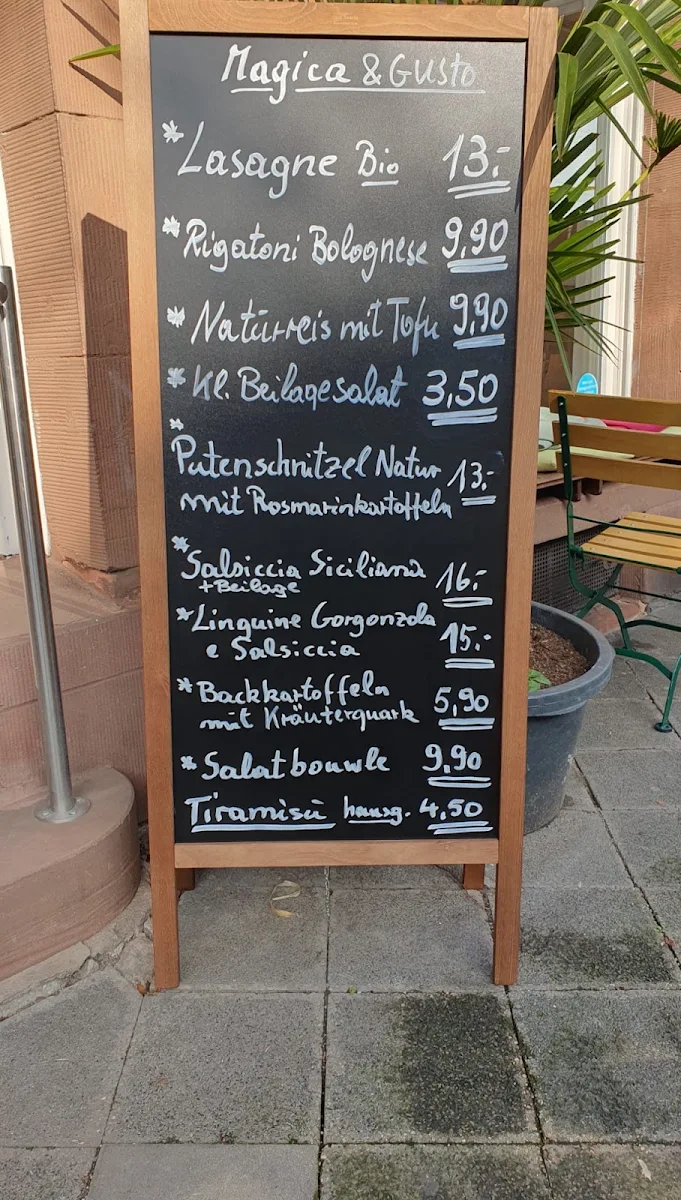 Magica & Gusto
*Lasagne Bio 13.-
*Rigatoni Bolognese 9,90
*Naturreis mit Tofu 9,90
*Kl. Beilagesalat 3,50
*
Putenschnitzel Natur 13.-
mit Rosmarinkartoffeln
*
Salsiccia Siciliana 16.-
+Beilage
*Linguine Gorgonzola
e Salsiccia 15.-
*Backkartoffeln 5,90
mit Kräuterquark
*Salatbouwle 9,90
Tiramisù hausg. 4,50